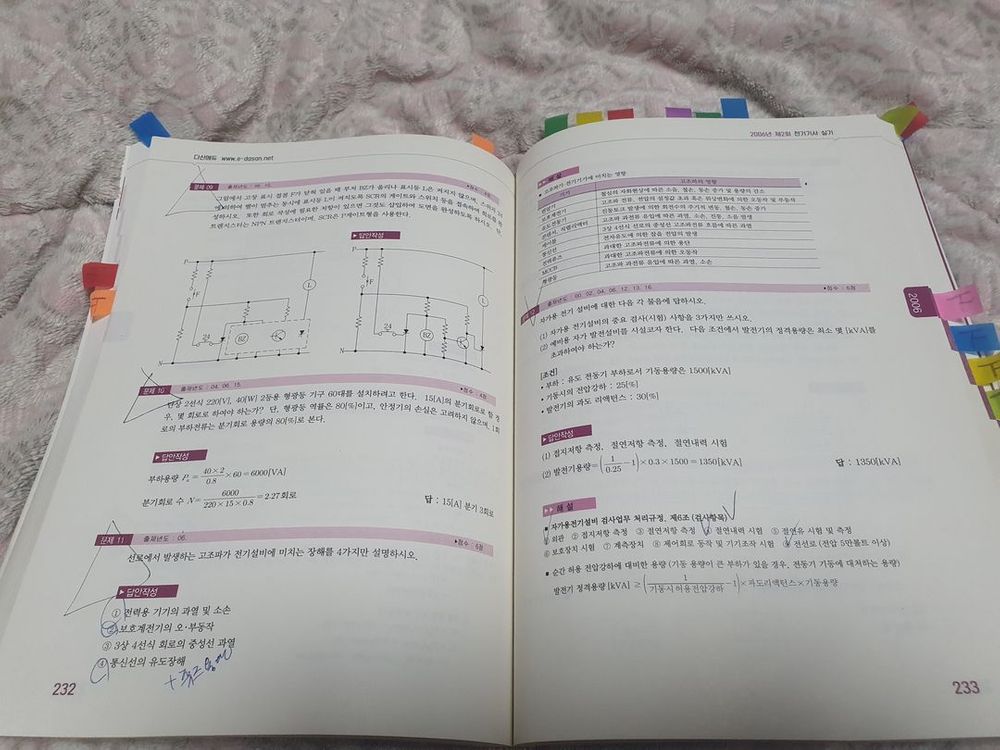 다산에듀 www.e-dasan.net
문제 09 출제년도 : 06. 15. •점수 : 4점
그림에서 고장 표시 접점 F가 닫혀 있을 때 부저 BZ가 울리나 표시등 L은 켜지지 않으며, 스위치 24
에 의하여 벨이 멈추는 동시에 표시등 L이 켜지도록 SCR의 게이트와 스위치 등을 접속하여 회로를 완
성하시오. 또한 회로 작성에 필요한 저항이 있으면 그것도 삽입하여 도면을 완성하도록 하시오. 단,
트랜지스터는 NPN 트랜지스터이며, SCR은 P게이트형을 사용한다.
답안작성
P
F
L
24
BZ
N
P
F
L
24
BZ
N
문제 10 출제년도 : 04. 06. 15. •점수 : 4점
단상 2선식 220[V], 40[W] 2등용 형광등 기구 60대를 설치하려고 한다. 15[A]의 분기회로로 할 경
우, 몇 회로로 하여야 하는가? 단, 형광등 역률은 80[%]이고, 안정기의 손실은 고려하지 않으며, 1회
로의 부하전류는 분기회로 용량의 80[%]로 본다.
답안작성
부하용량 Pₐ = 40×2/0.8 ×60=6000[VA]
분기회로 수 N= 6000/220×15×0.8 =2.27회로
답 : 15[A] 분기 3회로
문제 11 출제년도 : 06. •점수 : 5점
선로에서 발생하는 고조파가 전기설비에 미치는 장해를 4가지만 설명하시오.
답안작성
① 전력용 기기의 과열 및 소손
② 보호계전기의 오·부동작
③ 3상 4선식 회로의 중성선 과열
④ 통신선의 유도장해
232
2006년 제2회 전기기사 실기
해설
• 고조파가 전기기기에 미치는 영향
기기 고조파의 영향
변압기 철심의 자화현상에 따른 소음, 철손, 동손 증가 및 용량의 감소
유도전동기
3상 4선식 선로의 중성선 고조파전류 흐름에 따른 과열
통신선 전자유도에 의한 잡음 전압의 발생
전력퓨즈 과대한 고조파전류에 의한 용단
MCCB 과대한 고조파전류에 의한 오동작
형광등 고조파 과전류 유입에 따른 과열, 소손
2006
문제 12 출제년도 : 00. 02. 04. 06. 12. 13. 16. •점수 : 6점
자가용 전기 설비에 대한 다음 각 물음에 답하시오.
(1) 자가용 전기설비의 중요 검사(시험) 사항을 3가지만 쓰시오.
(2) 예비용 자가 발전설비를 시설코자 한다. 다음 조건에서 발전기의 정격용량은 최소 몇 [kVA]를
초과하여야 하는가?
[조건]
• 부하 : 유도 전동기 부하로서 기동용량은 1500[kVA]
• 기동시의 전압강하 : 25[%]
• 발전기의 과도 리액턴스 : 30[%]
답안작성
(1) 접지저항 측정, 절연저항 측정, 절연내력 시험
(2) 발전기용량=(1/0.25 −1)×0.3×1500=1350[kVA]
답 : 1350[kVA]
해설
■ 자가용전기설비 검사업무 처리규정, 제6조 (검사항목)
① 외관 ② 접지저항 측정 ③ 절연저항 측정 ④ 절연내력 시험 ⑤ 절연유 시험 및 측정
⑥ 보호장치 시험 ⑦ 계측장치 ⑧ 제어회로 동작 및 기기조작 시험 ⑨ 전선로 (전압 5만볼트 이상)
■ 순간 허용 전압강하에 대비한 용량 (기동 용량이 큰 부하가 있을 경우, 전동기 기동에 대처하는 용량)
발전기 정격용량 [kVA] ≥ (1/기동시 허용전압강하 −1)×과도리액턴스×기동용량
233